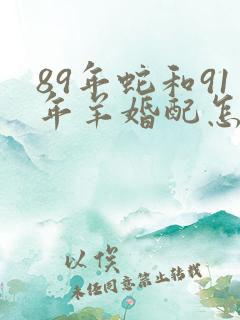 89年蛇和91
年羊婚配怎
以俟
未经同意禁止转载